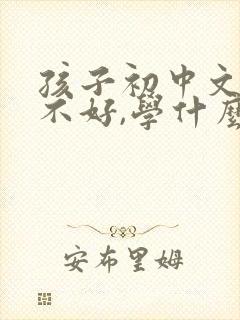 孩子初中文
不好,學什麼
安布里姆